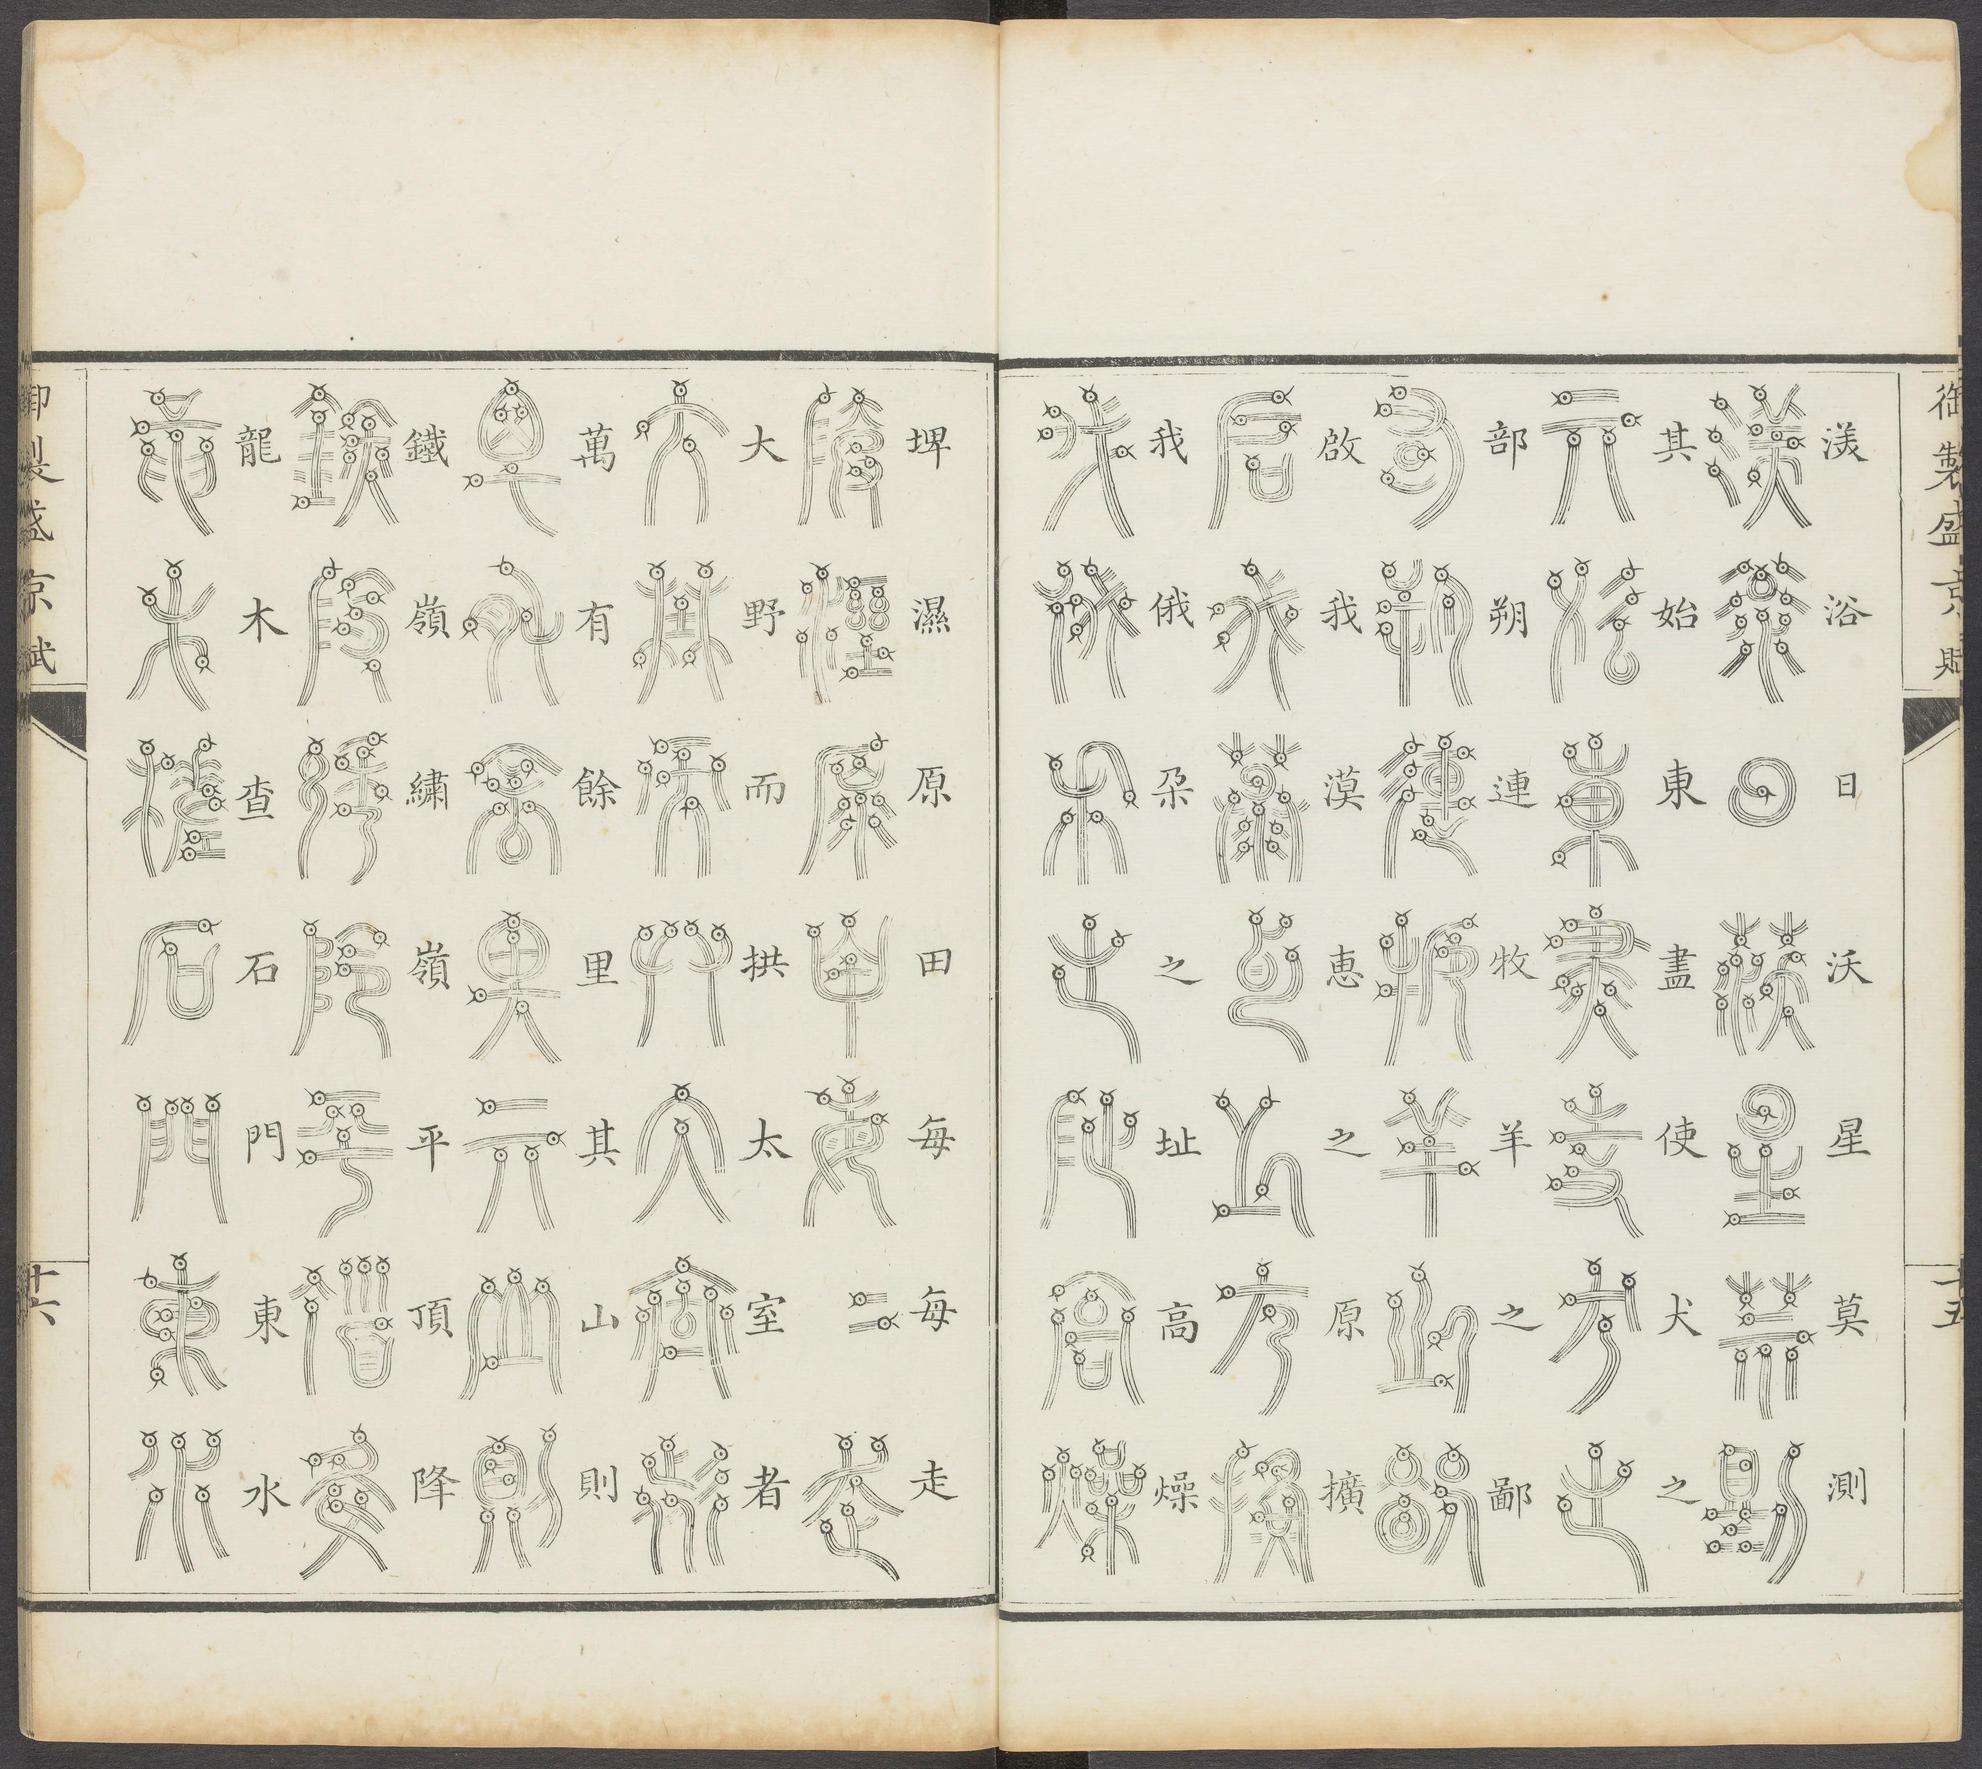 御製盛京賦
十五
渼浴日沃星莫測
其始東盡使犬之
部朔連牧羊之鄙
啟我漠恵之原擴
我俄朵之址高燥
埤濕原田每每走
大野而拱太室者
萬有餘里其山則
鐵嶺繡嶺平頂降
龍木查石門東水
御製盛京賦
十六